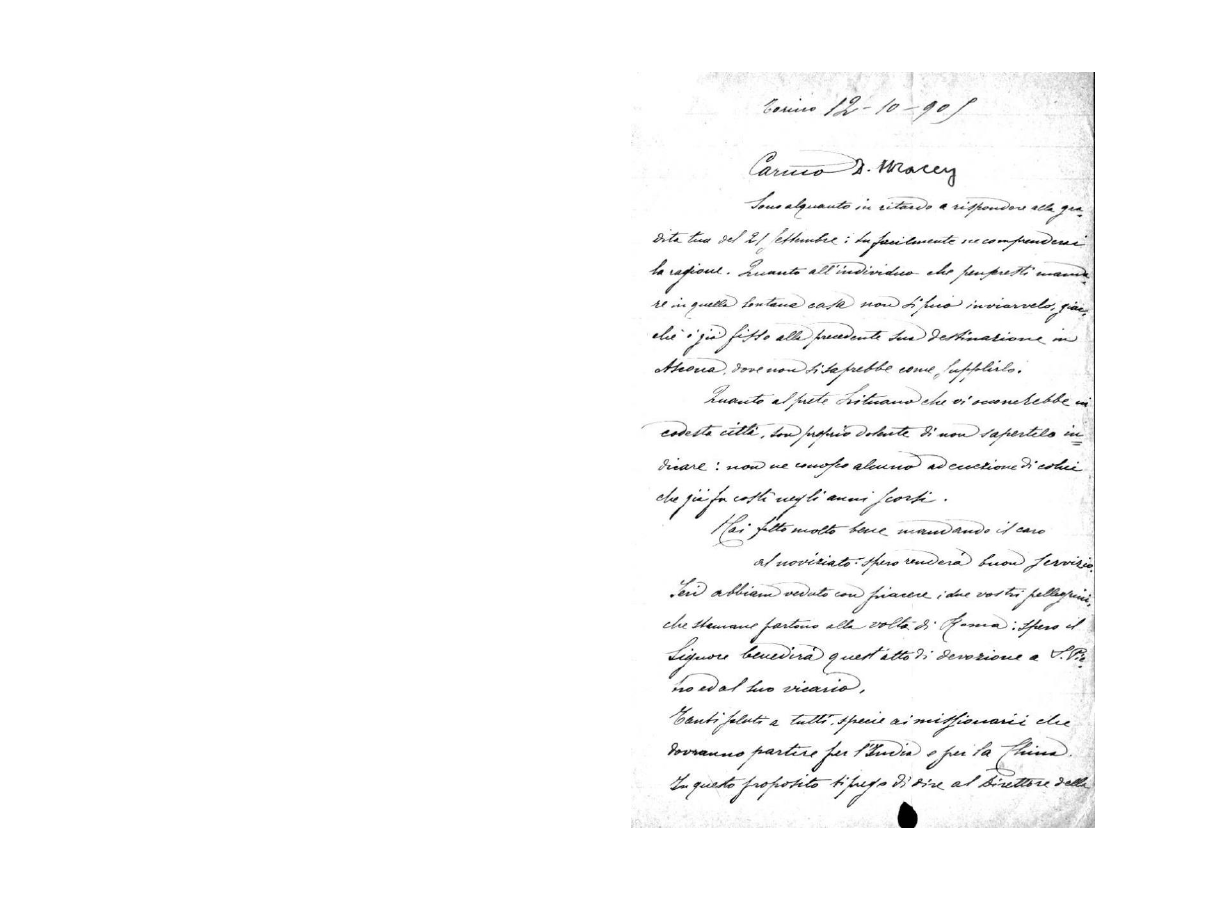 Torino 12-10-905
Carmo D. Macey
Sono alquanto in ritardo a rispondere alla gra-
dita tua del 21 Settembre: tu facilmente ne comprenderai
la ragione. Quanto all'individuo che penseresti manda-
re in quella lontana casa non si può inviarvelo, giac-
chè è già fisso alla precedente sua destinazione in
Ascona, dove non si saprebbe come supplirlo.
Quanto al prete Lituano che vi occorrerebbe in
codesta città, son proprio dolente di non sapertelo in
dicare: non ne conosco alcuno ad eccezione di colui
che già fu costì negli anni scorsi.
Hai fatto molto bene mandando il caro
al noviziato: spero renderà buon servizio.
Ieri abbiam veduto con piacere i due vostri pellegrini,
che stamane partono alla volta di Roma: spero il
Signore benedirà quest'atto di devozione a S. Pie-
tro ed al suo vicario.
Tanti saluti a tutti, specie ai missionarii che
dovranno partire per l'India e per la China.
In questo proposito ti prego di dire al Direttore della